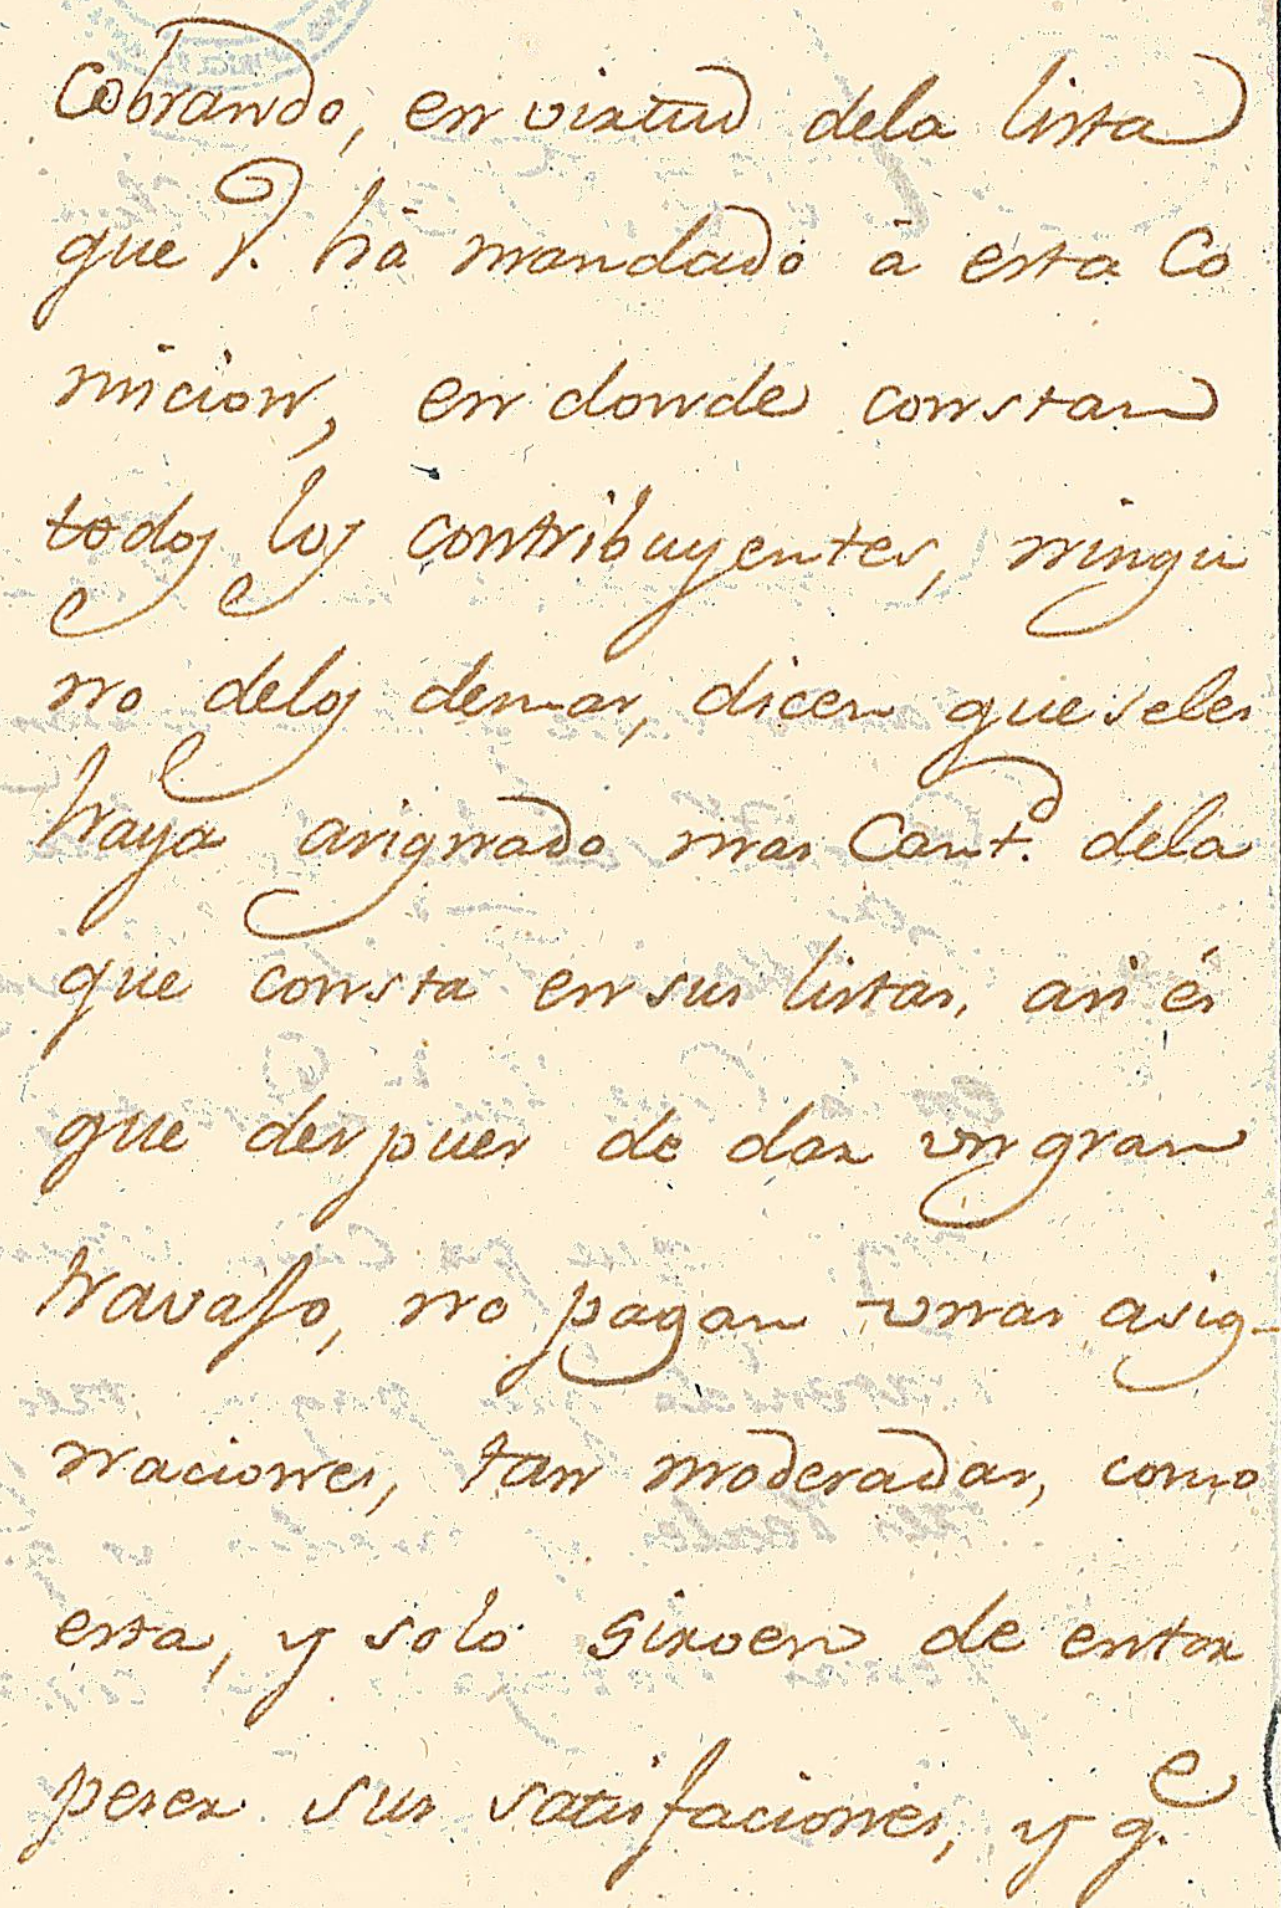 Cobrando, en virtud dela lista
que V. há mandado á esta Co
micion, en donde constan
todos los contribuyentes, ningu
no delos demas, dicen que seles
haya asignado mas Cant.d dela
que consta en sus listas, asi és
que despues de dar un gran
travajo, no pagan unas asig-
naciones, tan moderadas, como
esta, y solo sirven de entor
peser sus satisfaciones, y q.e